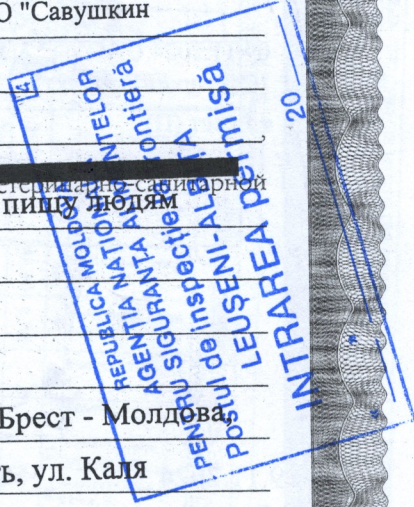 О "Савушкин
етеринарно-санитарной
пищу людям
Брест - Молдова,
ь, ул. Каля
4
REPUBLICA MOLDO
AGENȚIA NAȚION
PENTRU SIGURANȚA ALIMENTELOR
Postul de inspecție frontieră
LEUȘENI-ALBIȚA
INTRAREA permisă
20